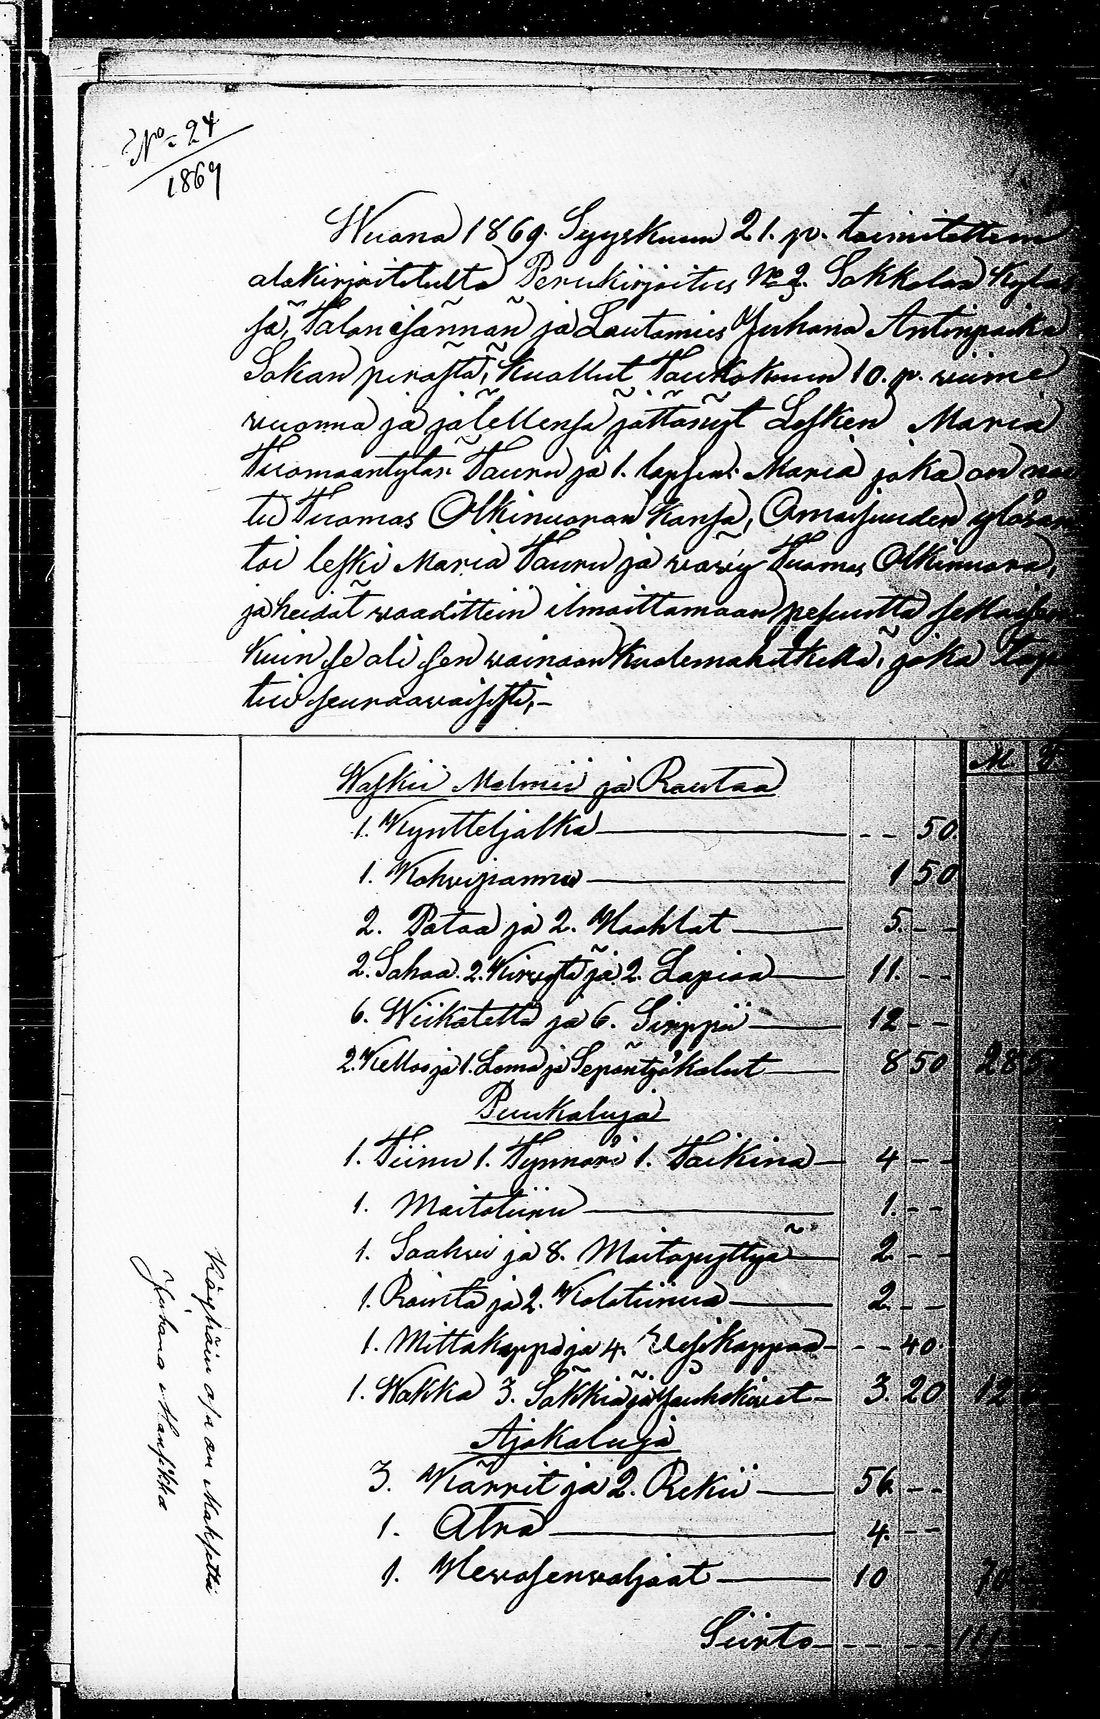 No 24
1869
Wuona 1869. Syyskuun 21. p. toimitettiin
alakirjoitetulta Perukirjoitus No 2. Sakkolan Kyläs
sä, Talon isännän ja Lautamies Juhana Antinpoika
Sakan perästä, kuollut Toukokuun 10. p. viime
vuonna ja jälellensä jättänyt Lesken Maria
Tuomaantytär Tauru ja 1. lapsen: Maria joka on nai
tu Tuomas Olkinuoran kansa, Omaisuuden ylösan
toi leski Maria Tauru ja wäwy Tuomas Olkinuora,
ja heidät waadittiin ilmoittamaan pesuutta
kuin se oli sen wainaan kuolemahetkellä, joka tapa
tui seuraawaisesti,-
M.
Waskii Malmii ja Rautaa
1. Kyntteljalka — - - 50.
1. Kohvipannu — 1 50
2. Pataa ja 2. Haahlat — 5. - -
2. Sahaa. 2. Kirvestä ja 2. Lapiaa — 11. - -
6. Wiikatetta ja 6. Sirppii — 12 - -
2. Kelloo ja 1. Lama ja Sepäntyökalut — 8 50 28 5
Puukaluja
1. Tiinu 1. Tynnäri 1. Taikina — 4 - -
1. Maitotiinu — 1. - -
1. Saahvi ja 8. Maitopyttyä — 2 - -
1. Rainta ja 2. Kalatiinua — 2. - -
1. Mittakappa ja 4. Vesikappaa - - - 40.
1. Wakka 3. Säkkiä ja Jauhokivet — 3. 20 12
Ajokaluja
3. Kärrit ja 2. Rekii — 56 - -
1. Atra — 4. - -
1. Hevosenvaljaat — 10 70
Siirto - - - - 111
Köyhäin osa on Maksettu
Juhana Mansikka